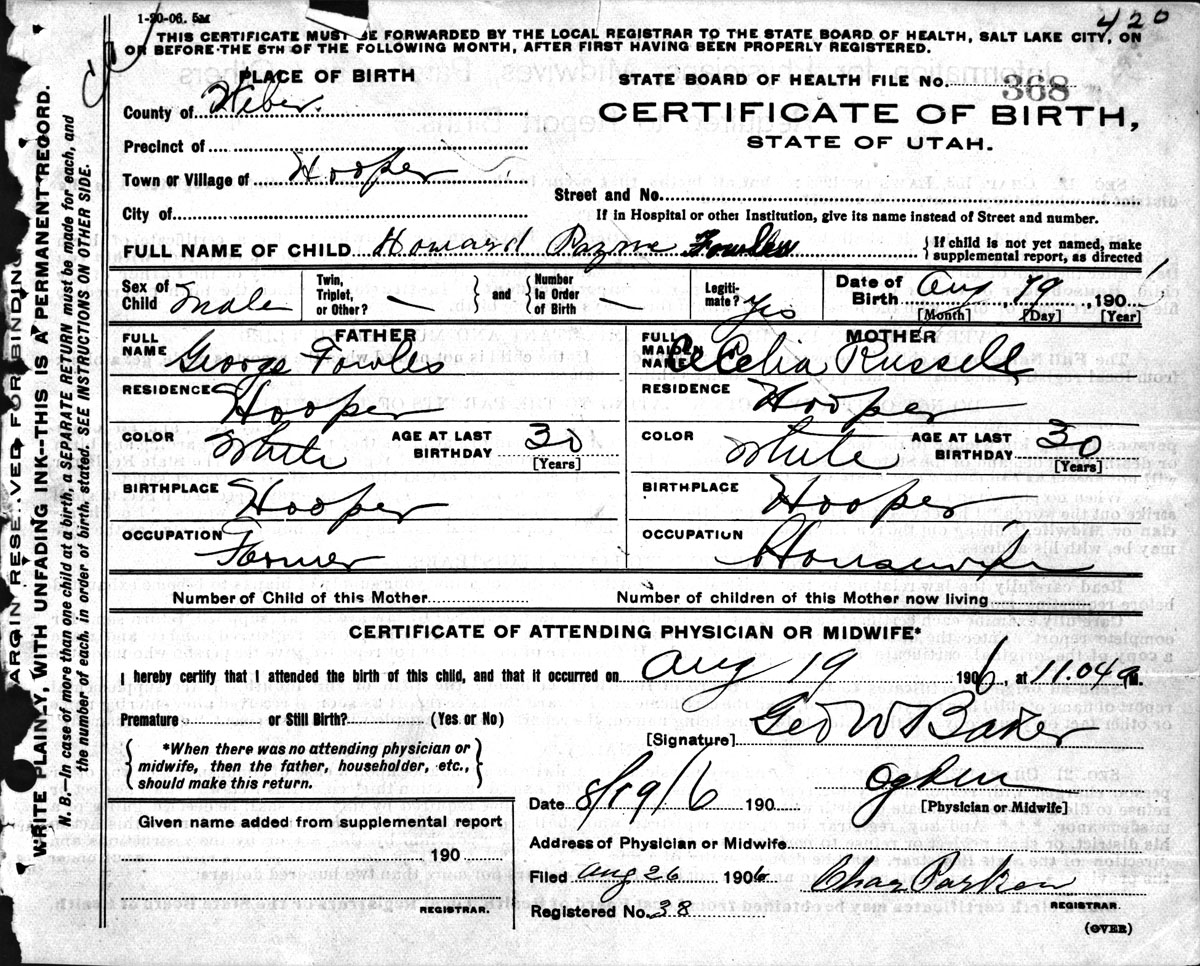 1-20-06. 5M
420
THIS CERTIFICATE MUST BE FORWARDED BY THE LOCAL REGISTRAR TO THE STATE BOARD OF HEALTH, SALT LAKE CITY, ON
OR BEFORE THE 5TH OF THE FOLLOWING MONTH, AFTER FIRST HAVING BEEN PROPERLY REGISTERED.
PLACE OF BIRTH
STATE BOARD OF HEALTH FILE No. 368
County of Weber.
CERTIFICATE OF BIRTH,
STATE OF UTAH.
Precinct of
Town or Village of Hooper
Street and No.
City of
If in Hospital or other Institution, give its name instead of Street and number.
FULL NAME OF CHILD Howard Payne Fowles
{If child is not yet named, make
supplemental report, as directed
Sex of Child Male
Twin, Triplet, or Other? —
{and}
Number In Order of Birth —
Legiti- mate? Yes
Date of Birth Aug 19, 190
[Month] [Day] [Year]
FATHER
MOTHER
FULL NAME George Fowles
FULL MAIDEN NAME Cecelia Russell
RESIDENCE Hooper
RESIDENCE Hooper
COLOR White AGE AT LAST BIRTHDAY 30 [Years]
COLOR White AGE AT LAST BIRTHDAY 30 [Years]
BIRTHPLACE Hooper
BIRTHPLACE Hooper
OCCUPATION Farmer
OCCUPATION Housewife
Number of Child of this Mother
Number of children of this Mother now living
CERTIFICATE OF ATTENDING PHYSICIAN OR MIDWIFE*
I hereby certify that I attended the birth of this child, and that it occurred on Aug 19 1906, at 11.04 a M.
Premature or Still Birth? (Yes or No)
[Signature] Geo W Baker
{*When there was no attending physician or
midwife, then the father, householder, etc.,
should make this return.}
Ogden
Date 8/19/6 190
[Physician or Midwife]
Given name added from supplemental report
Address of Physician or Midwife
190
Filed Aug 26 1906 Chas Parker
REGISTRAR.
Registered No. 38
REGISTRAR.
(OVER)
MARGIN RESERVED FOR BINDING
WRITE PLAINLY, WITH UNFADING INK--THIS IS A PERMANENT RECORD.
N. B.—In case of more than one child at a birth, a SEPARATE RETURN must be made for each, and
the number of each, in order of birth, stated. SEE INSTRUCTIONS ON OTHER SIDE.